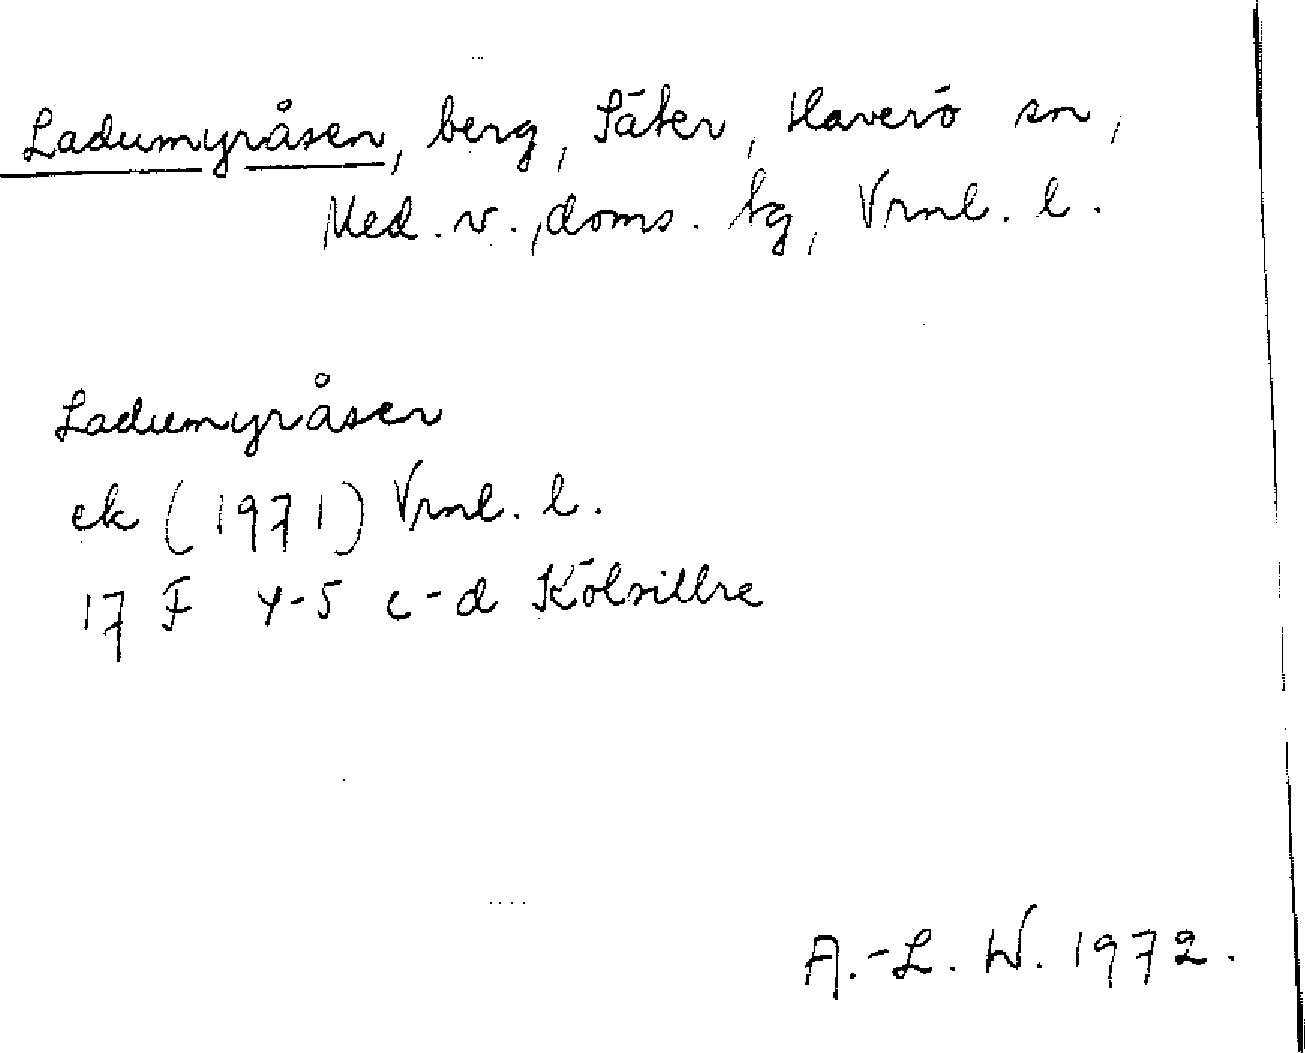 Ladumyråsen, berg, Säter, Haverö sn,
Med. v., doms. tg, Vrnl. l.
Ladumyråsen
ek (1971) Vrnl. l.
17 F 4-5 c-d Kölsillre
A.-L. W. 1972.